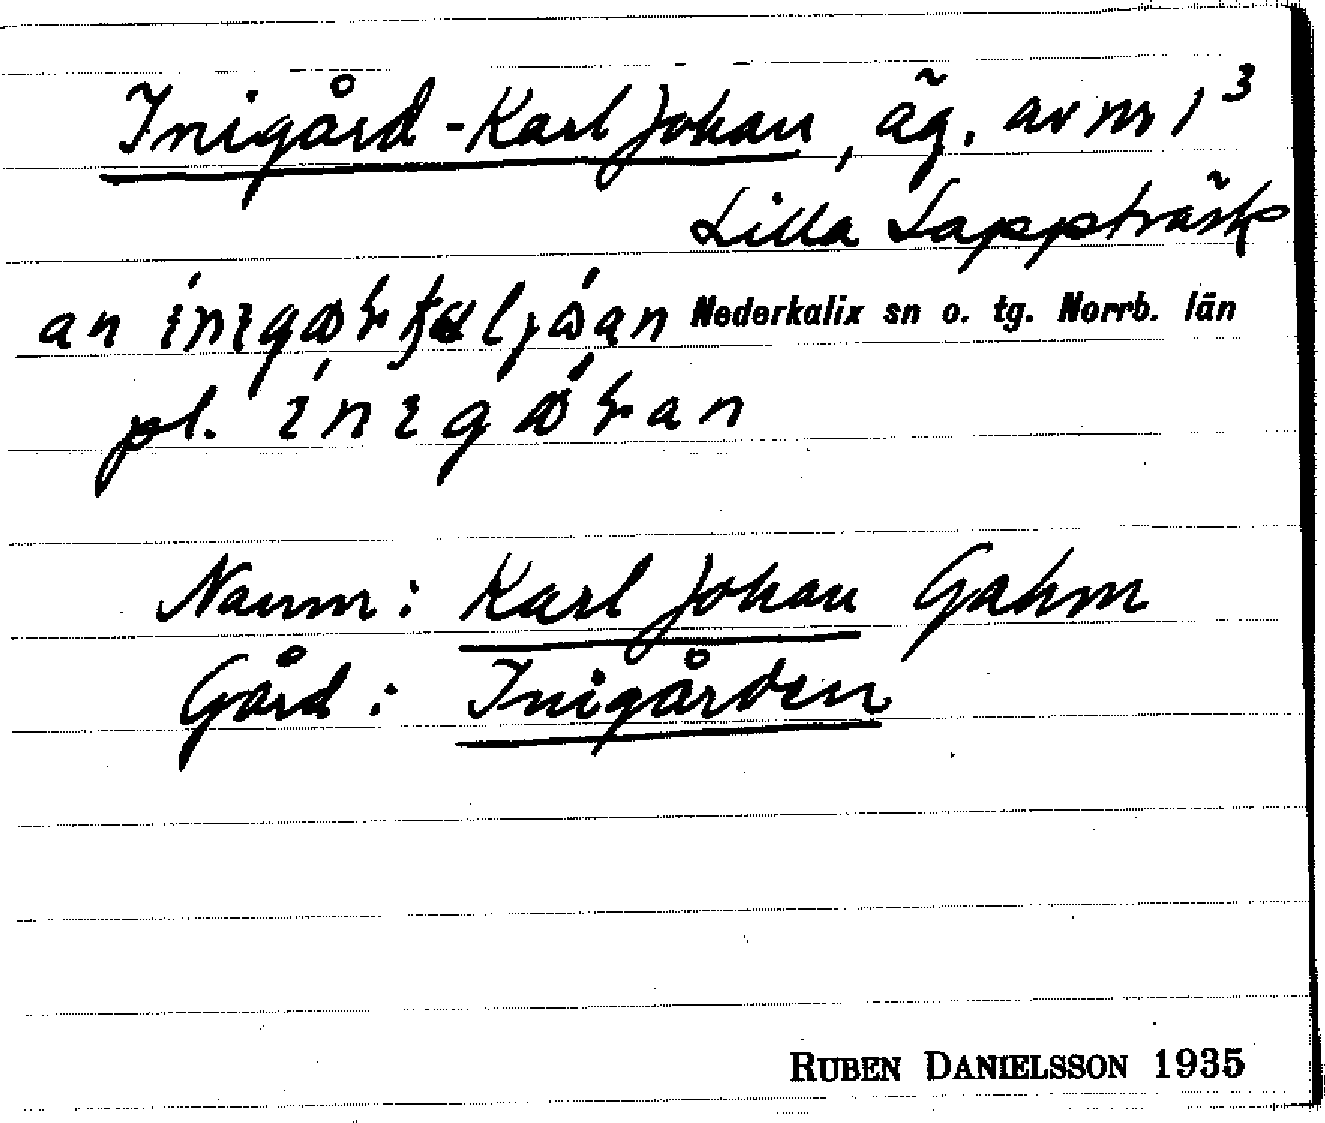 Inigård-Karl Johan, äg. av nr 1³
Lilla Lappträsk
an Nederkalix sn o. tg. Norrb. län
pl.
Namn: Karl Johan Gahm
Gård: Inigården
RUBEN DANIELSSON 1935